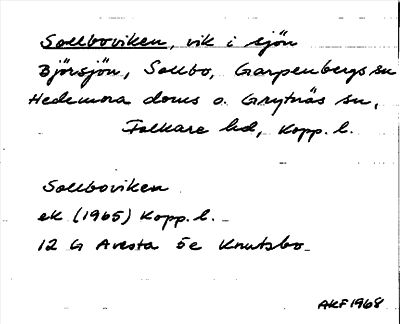 Sollboviken, vik i sjön
Björsjön, Sollbo, Garpenbergs sn
Hedemora doms o. Grytnäs sn,
Folkare hd, Kopp. l.
Sollboviken
ek (1965) Kopp. l.
12 G Avesta 5e Knutsbo
AKF 1968